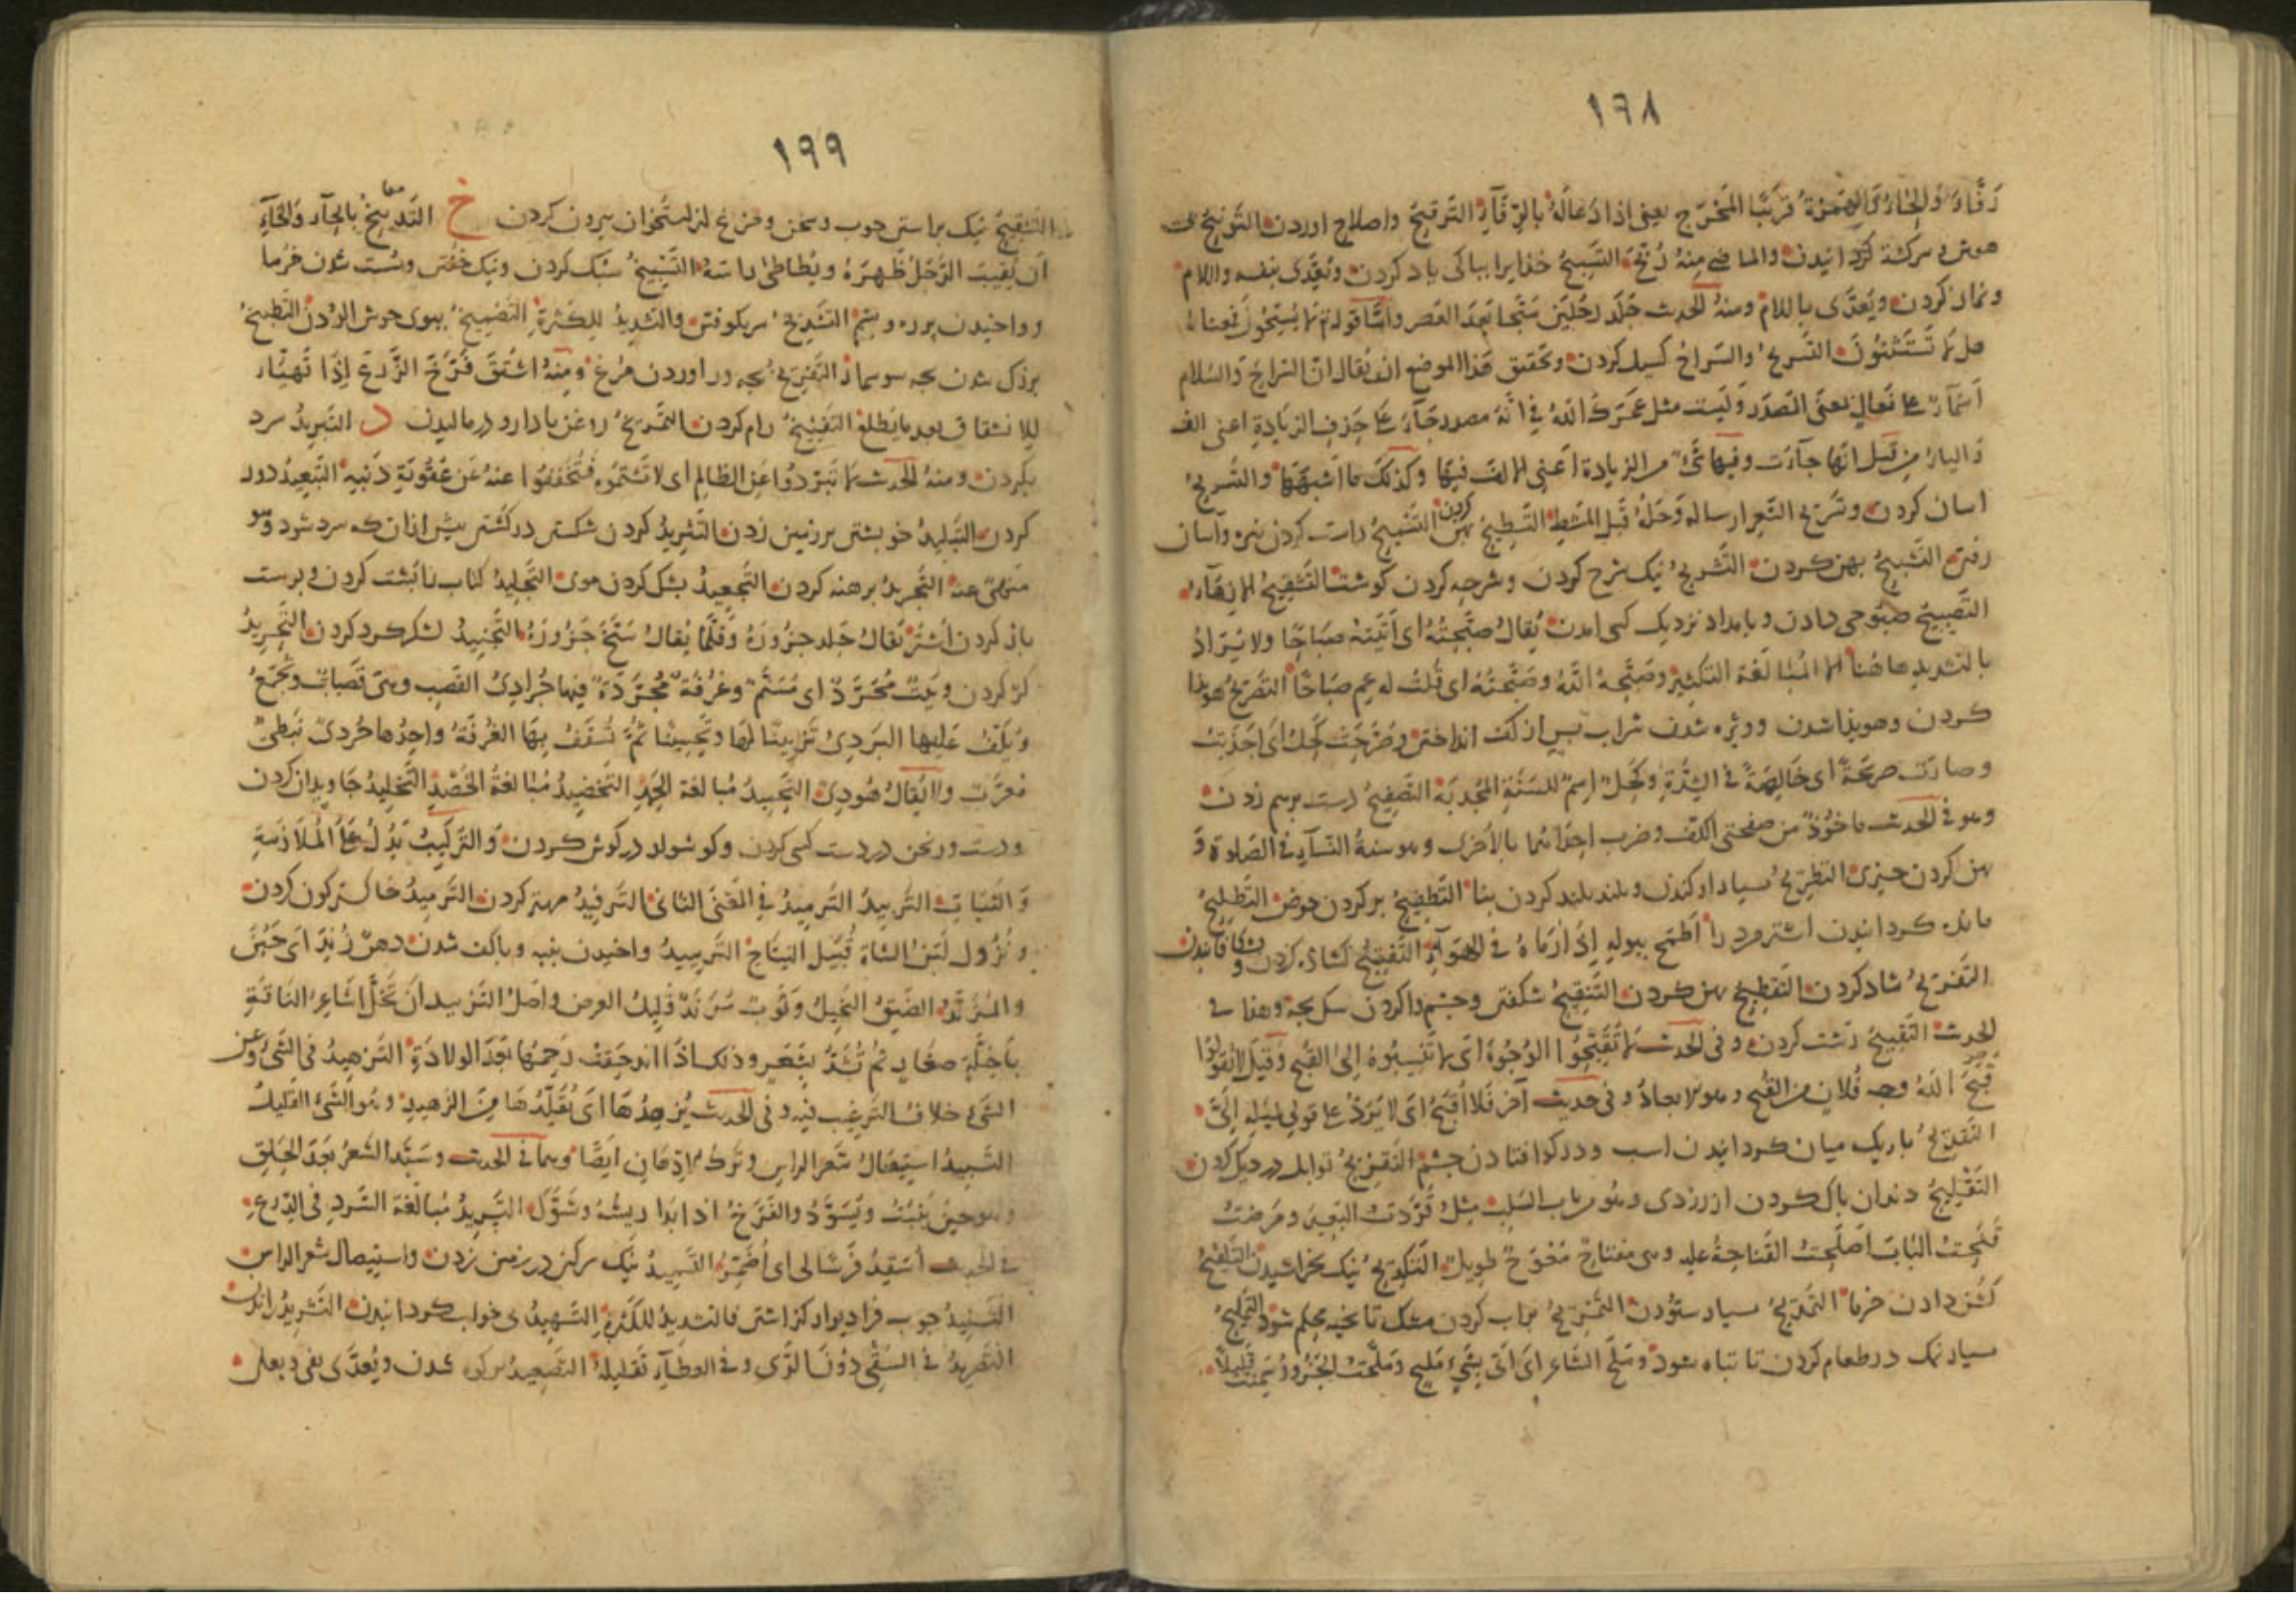 ١٩٨
رَفَّاهُ وَالحَاءُ وَالهَمزَةُ قَرِيبَا المَخْرَجِ يعنى اذا دَعَا لَهُ بالرِّفَآءِ التَّرقيحُ واصلاح اوردن التَّرنيحُ
هوش و سركشته كردانيدن والماضى مِنْهُ رُنِّحَ التَّسبيحُ خدايرا بباكى ياد كردن ويُعَدَّى بنفسه واللام
ونماز كردن ويُعَدَّى باللام ومنهُ الحديث جَلَدَ رَجُلَيْن سَبَّحَا بَعدَ العَصر وامَّا قوله تع لَولا تُسَبِّحُونَ فمعناه
هل لا تَسْتَثْنُونَ التَّسريحُ والسَّراحُ كسيل كردن وتحقيق هَذا الموضع ان يُقال انّ السَّراحَ والسَّلام
اَسْمَآءٌ على فَعَالٍ بمعنَى المَصدَر وَلَيست مثل عَمْرَكَ اللّٰهَ فى انّهُ مصدر جَآءَ على حَذفِ الزيادةِ اعنى الف
وَالياء مِن قِبَل انّها جآءَت وفيها شَىْءٌ من الزيادة اَعنِى الالفَ فيها وكذلك ما اشبَهَهَا والتَّسريحُ
اسان كردن وتَسْريح الشَّعر ارساله وَحَلُّهُ قَبل المَشطِ التَّسطيحُ بهن كردن التَّشييحُ راست كردن نيزه واسان
رفتن التَّشبيحُ بهن كردن التَّشريحُ نيك شرح كردن وشرحه كردن كوشت التَّشقيحُ الازهَاءُ
التَّصبيحُ صَبُوحى دادن وبامداد نزديك كسى امدن يُقالُ صَبَّحتُهُ اى اَتَيْتُهُ صَبَاحًا ولا يُرَادُ
بالتشديد هاهُنا الا المُبَالَغة التكثير وصَبَّحَهُ اللّٰهُ وصَبَّحتُهُ اى قُلتُ له عِم صَبَاحًا التَّصريحُ هويذا
كردن وهويذا شدن وويژه شدن شراب بس از كف انداختن وصَرَّحَتْ كَحْلُ اى اَجْدَبَتْ
وصارَت صريحَةً اى خَالِصَةً فى الشِّدَّةِ وكَحْلُ اِسمٌ للسَّنَةِ المُجْدِبَة التَّصفيحُ دست برهم زدن
وهو فى الحديث ماخُوذٌ من صفحتى الكفّ وضرب احداهُما بالاُخرى وهو سنةُ النّسآءِ فى الصّلوة وَ
بهن كردن چيزى التطريحُ بسيار اوكندن وبلند بلند كردن بنا التَّطفيحُ بركردن حوض التَّطليحُ
مانده كردانيدن اشتر مرد را اَطْمَحَ ببوله اِذَا رَمَاهُ فى الهَوَآءِ التَّفتيحُ كشاده كردن
التَّفريحُ شاد كردن التَّفطيحُ بهن كردن التَّفقيحُ شكفتن وچشم واكردن سك بچه وهذا فى
الحديث التَّقبيحُ زشت كردن وفى الحديث لا تُقَبِّحُوا الوُجُوهَ اى لا تَنسِبُوهُ اِلىَ القُبح وَقيلَ لا تَقولُوا
قَبَّحَ اللّٰهُ وجه فُلانٍ من القُبح وهو الابعادُ وفى حديث آخر فَلَا اُقَبَّحُ اى لا يُرَدُّ على قولى لميلهِ اِلَىَّ
التَّقديحُ باريك ميان كردانيدن اسب ودر كو افتادن چشم التَّقزيحُ توابل در ديك كردن
التَّقليحُ دندان باك كردن از زردى وهو من باب السَّلب مثلُ قَرَّدتُ البَعير ومَرَّضتُ
فَنَّحتُ البَابَ اَصْلَحتُ القُنَّاحةَ عليه وهى مِفتاحٌ مُعْوَجٌّ طويلٌ التَّكديحُ نيك بخراشيدن التَّلقيحُ
كشن دادن خرما التَّمديحُ بسيار ستُودن التَّمزيحُ براب كردن مشك تا بخيه محكم شود التَّمليحُ
بسيار نمك در طعام كردن تا تباه شود ومَلَّحَ الشَّاعِرُ اى اَتَى بشَىءٍ مَليحٍ ومَلَّحت الجَزُورُ سَمِنَتْ قَليلاً
١٩٩
التَّنقيحُ نيك براستن جوب وسخن ومزغ از استخوان بيرون كردن خ التَّدبيخُ بالحآءِ وَالخآءِ
اَن يُقَبِّبَ الرَّجُلُ ظَهرَهُ ويُطَاطئ راسَهُ التَّسبيخُ سبك كردن ونيك خفتن وسُست شدن گرما
وواخيدن بنبه وبشم التَّشديخُ سر بكوفتن والتشديدُ للكَثرةِ التَّضميخُ ببوى خوش الودن التَّطبيخُ
بزرك شدن بچه سوسمار التَّفريخُ بچه دراوردن مُرغ ومنهُ اشتُقَّ فَرَّخَ الزَّرعُ اِذَا تَهَيَّأَ
للانشقاق بعد ما يَطلع التَّفنيخُ رام كردن التَّمريخُ روغن يا دارو در ماليدن د التَّبريدُ سرد
بكردن ومنهُ الحديث لا تُبَرِّدُوا عَنِ الظالِم اى لا تَشتُمُوهُ فتُخَفِّفُوا عنهُ مِن عُقُوبَةِ ذَنبِهِ التَّبعيدُ دور
كردن التَّبليدُ خويشتن بر زمين زدن التَّثريدُ كردن شكستن در كشتن بيش ازان كه سرد شود وهو
مَنهىٌّ عنهُ التَّجريدُ برهنه كردن التَّجعيدُ بشك كردن موى التَّجليدُ كتاب را بُشت كردن وبوست
باز كردن اُشتُر يُقالُ جَلَّد جَزُورَهُ وَقَلَّمَا يُقالُ سَلَخَ جَزُورَهُ التَّجنيدُ لشكر كرد كردن التَّحريدُ
كژ كردن وبَيتٌ مُحَرَّدٌ اى مُسَنَّمٌ وغُرْفَةٌ مُحَرَّدَةٌ فيها حَرَادِىُّ القَصَب وهى قَصَبَاتٌ وتُجمَعُ
ويُلَفُّ عَلَيها البَردِىُّ تَزيينًا لَهَا وتحسينًا ثُمَّ تُسَقَّفُ بِهَا الغُرْفَةُ واحِدُها حُردىٌّ نَبَطىٌّ
مُعَرَّبٌ ولا يُقالُ هُردِىٌّ التَّحميدُ مُبالغة الحَمدِ التَّخضيدُ مُبَالغةُ الخَضدِ التَّخليدُ جَاويدان كردن
ودست ورنجن در دست كسى كردن وكوشوار در كوش كردن والتركيبُ يَدُلُّ عَلَى المُلَازَمَةِ
وَالثَّبَاتِ التَّربيدُ التَّرميدُ فى المَعْنَى الثانى التَّرفيدُ مهتر كردن التَّرميدُ خاكستر كون كردن
ونُزُول لَبَن الشاة قُبَيل النِّتَاج التَّزبيدُ واخيدن بنبه وباكف شدن دهن زُبِّدَ اى حُبِسَ
والمُزَنَّدُ الضَيِّقُ البَخيلُ وثَوبٌ مُزَنَّدٌ قَليلُ العرض واَصلُ التَّزنيد ان تُخَلَّ اشَاعِرُ النَّاقَةِ
باَخِلَّةٍ صِغَارٍ ثُم تُشَدُّ بشَعَرٍ وذلك اذا اندحَقَتْ رَحِمُهَا بَعدَ الولادَةِ التَّزهيدُ فى الشَّىءِ وعن
الشَّىءِ خلافُ التَّرغيب فيه وفى الحديث يُزَهِّدُهَا اى يُقَلِّلُهَا مِنَ الزَّهيدِ وهُو الشَّىءُ القَليلُ
التَّسبيدُ استيصَالُ شَعَر الراس وتَركُ الادِّهَان ايضًا وهما فى الحديث وسَبَّدَ الشَّعرُ بَعدَ الحَلق
وهو حين يَنبُتُ ويَسوَدُّ والفَرخُ اذا بَدَا ريشُهُ وشَوَّكَ التَّسريدُ مُبَالغة السَّردِ فى الدِّرعِ
فى الحديث اُسَقِّدُ فَرَسًا لى اى اُضَمِّرُهُ التَّسميدُ نيك سركين در زمين زدن واستيصال شعر الراس
التَّسنيدُ جوب فرا ديوار كزاشتن فالتشديدُ للكَثرةِ التَّسهيدُ بى خواب كردانيدن التَّشريدُ راندن
التَّصريدُ فى السَّقى دُونَ الرَّىِّ وفى العطآءِ تَقليلُهُ التَّصعيدُ بر كوه شدن ويُعَدَّى بفى وبعلى